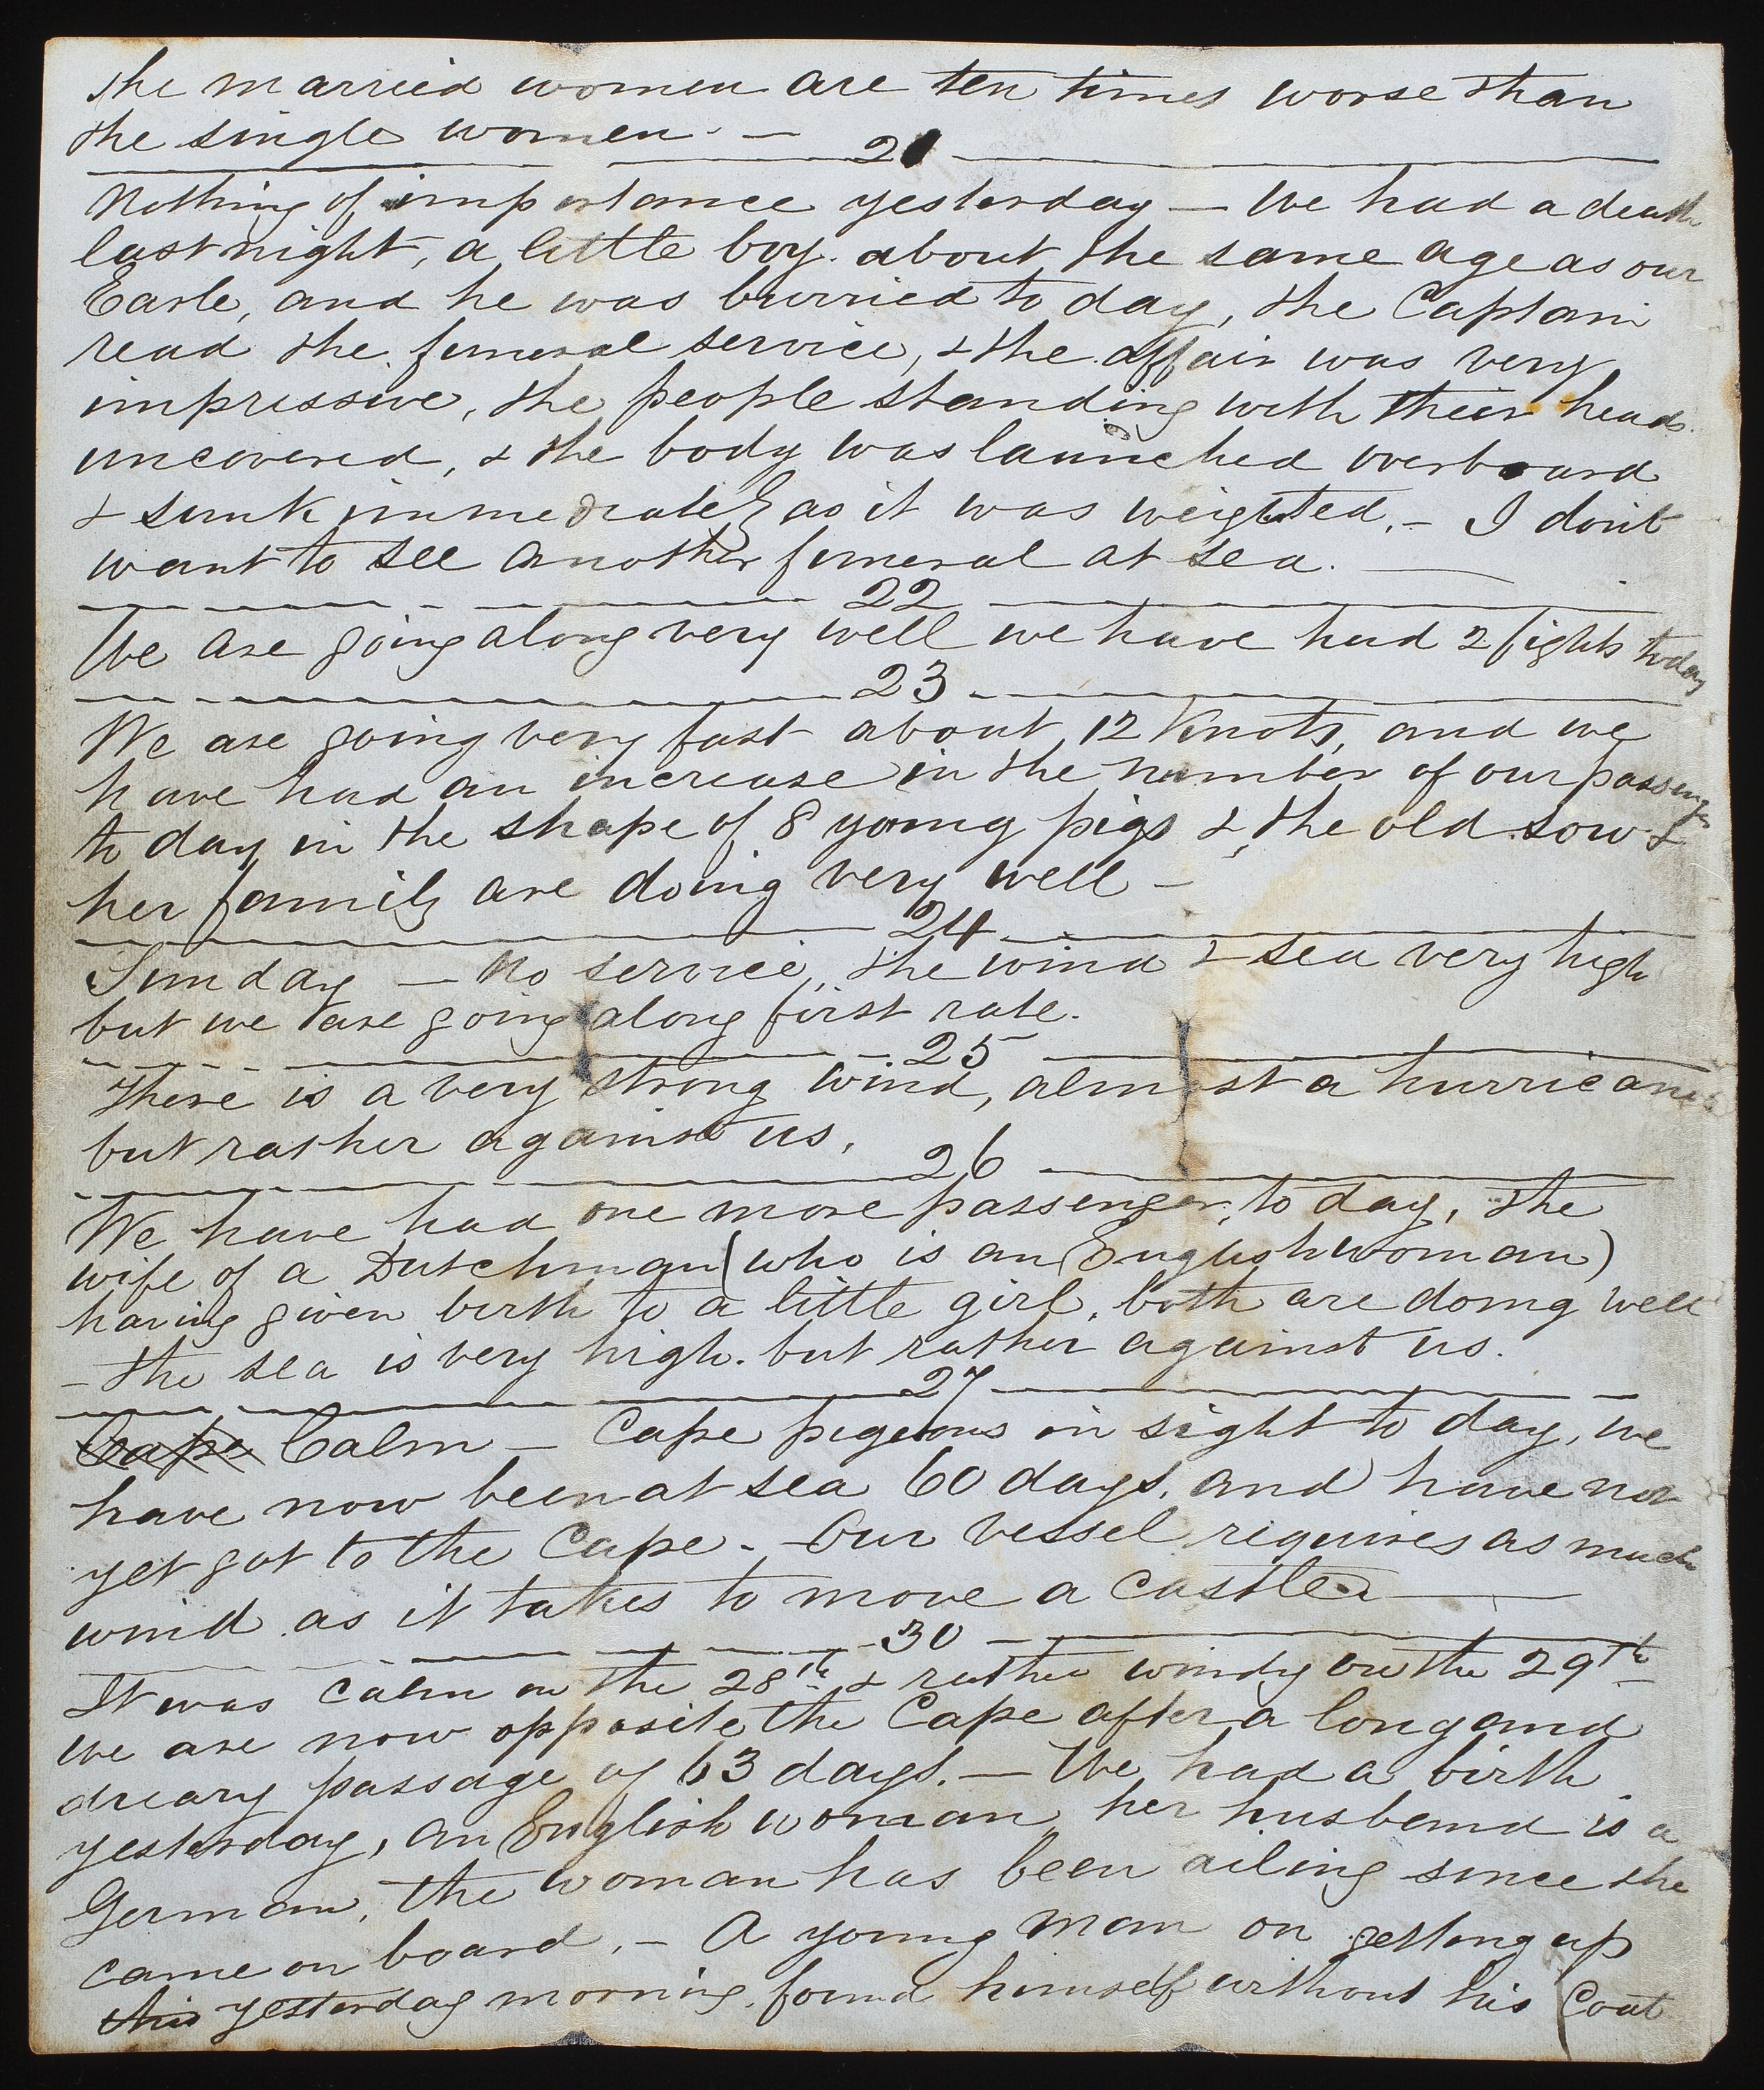 the married women are ten times worse than
the single women. —
21
Nothing of importance yesterday — We had a death
last night, a little boy. about the same age as our
Earle, and he was burried to day, the Captain
read the funeral service, & the affair was very
impressive, the people standing with their heads
uncovered, & the body was launched overboard
& sunk immediately as it was weighted. – I don't
want to see another funeral at sea. —
22
We are going along very well we have had 2 fights today
23
We are going very fast about 12 Knots, and we
have had an increase in the number of our passengers
to day in the shape of 8 young pigs & the old sow &
her family are doing very well –
24
Sunday — No service, the wind & sea very high
but we are going along first rate.
25
There is a very strong wind, almost a hurricane
but rather against us.
26
We have had one more passenger, to day, the
wife of a Dutchman (who is an Englishwoman)
having given birth to a little girl, both are doing well
– the sea is very high. but rather against us.
27
Cape Calm – Cape pigeons in sight to day, we
have now been at sea 60 days, and have not
yet got to the Cape. – Our vessel requires as much
wind as it takes to move a Castle. —
30
It was calm on the 28th & rather windy on the 29th
We are now opposite the Cape after a long and
dreary passage of 63 days. — We had a birth
yesterday, an English woman, her husband is a
German, the woman has been ailing since she
came on board. – A young man on getting up
this yesterday morning, found himself without his Coat